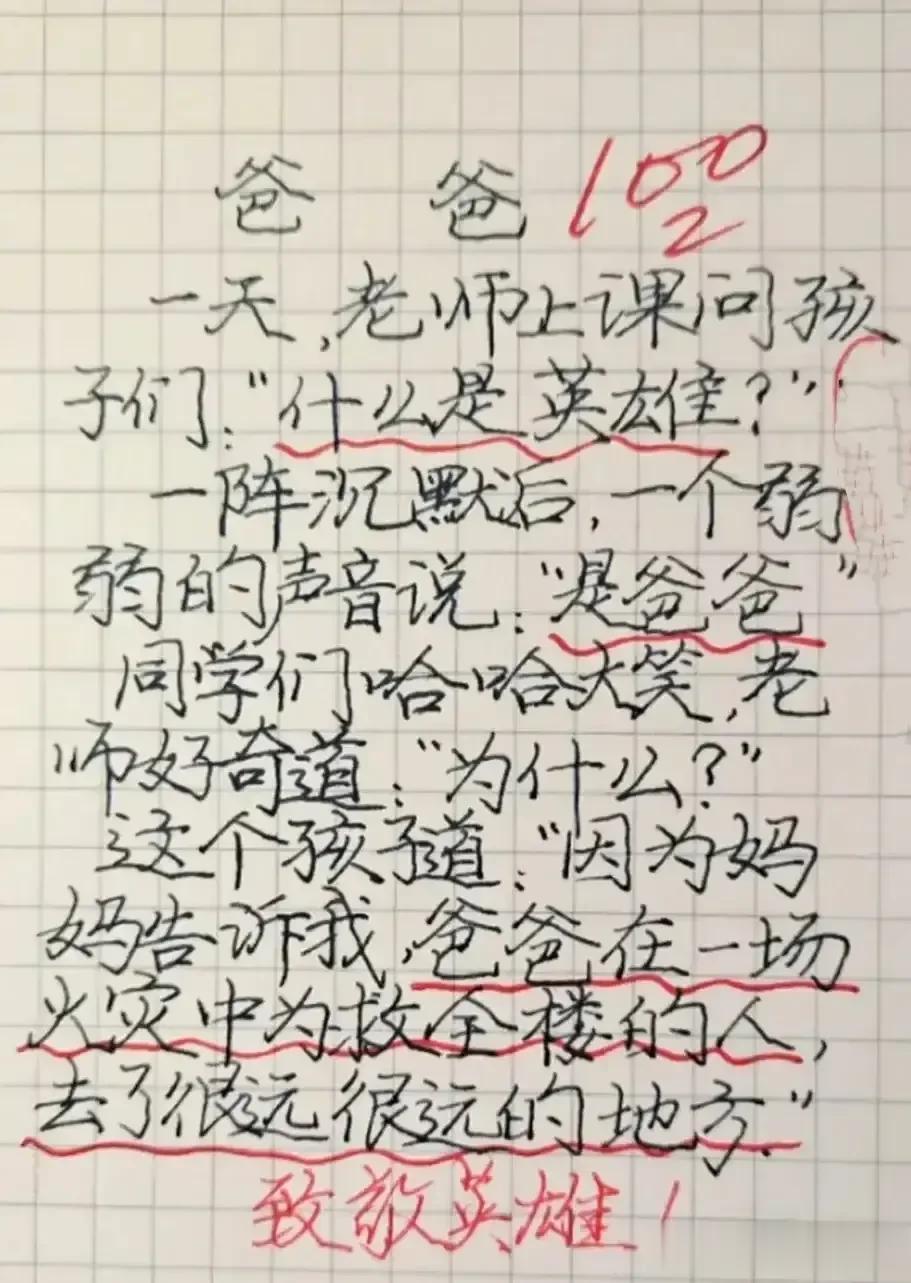 爸 爸 100
2
一天,老师上课问孩
子们:“什么是英雄?”
一阵沉默后,一个弱
弱的声音说:“是爸爸”
同学们哈哈大笑,老
师好奇道:“为什么?”
这个孩子道:“因为妈
妈告诉我,爸爸在一场
火灾中为救全楼的人,
去了很远很远的地方.”
致敬英雄!